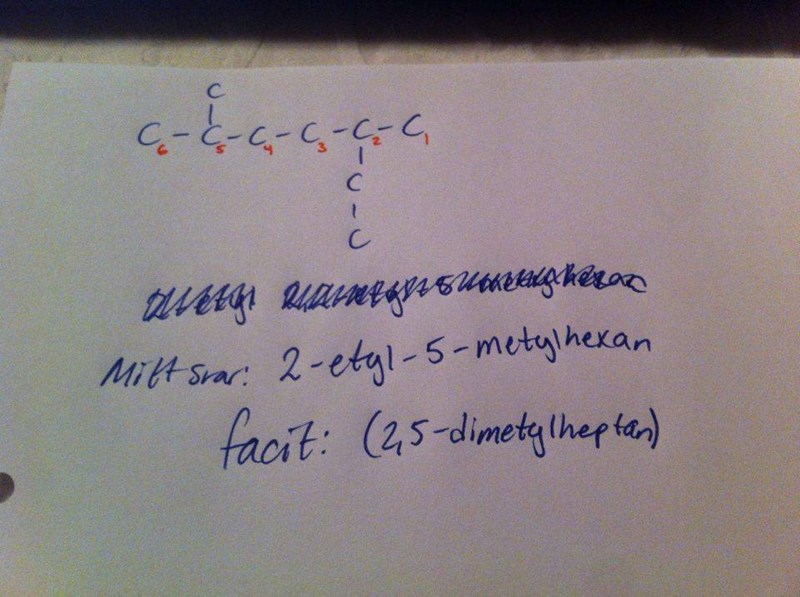 C
C - C - C - C - C - C
6 5 4 3 2 1
C
C
Mitt svar: 2-etyl-5-metylhexan
facit: (2,5-dimetylheptan)